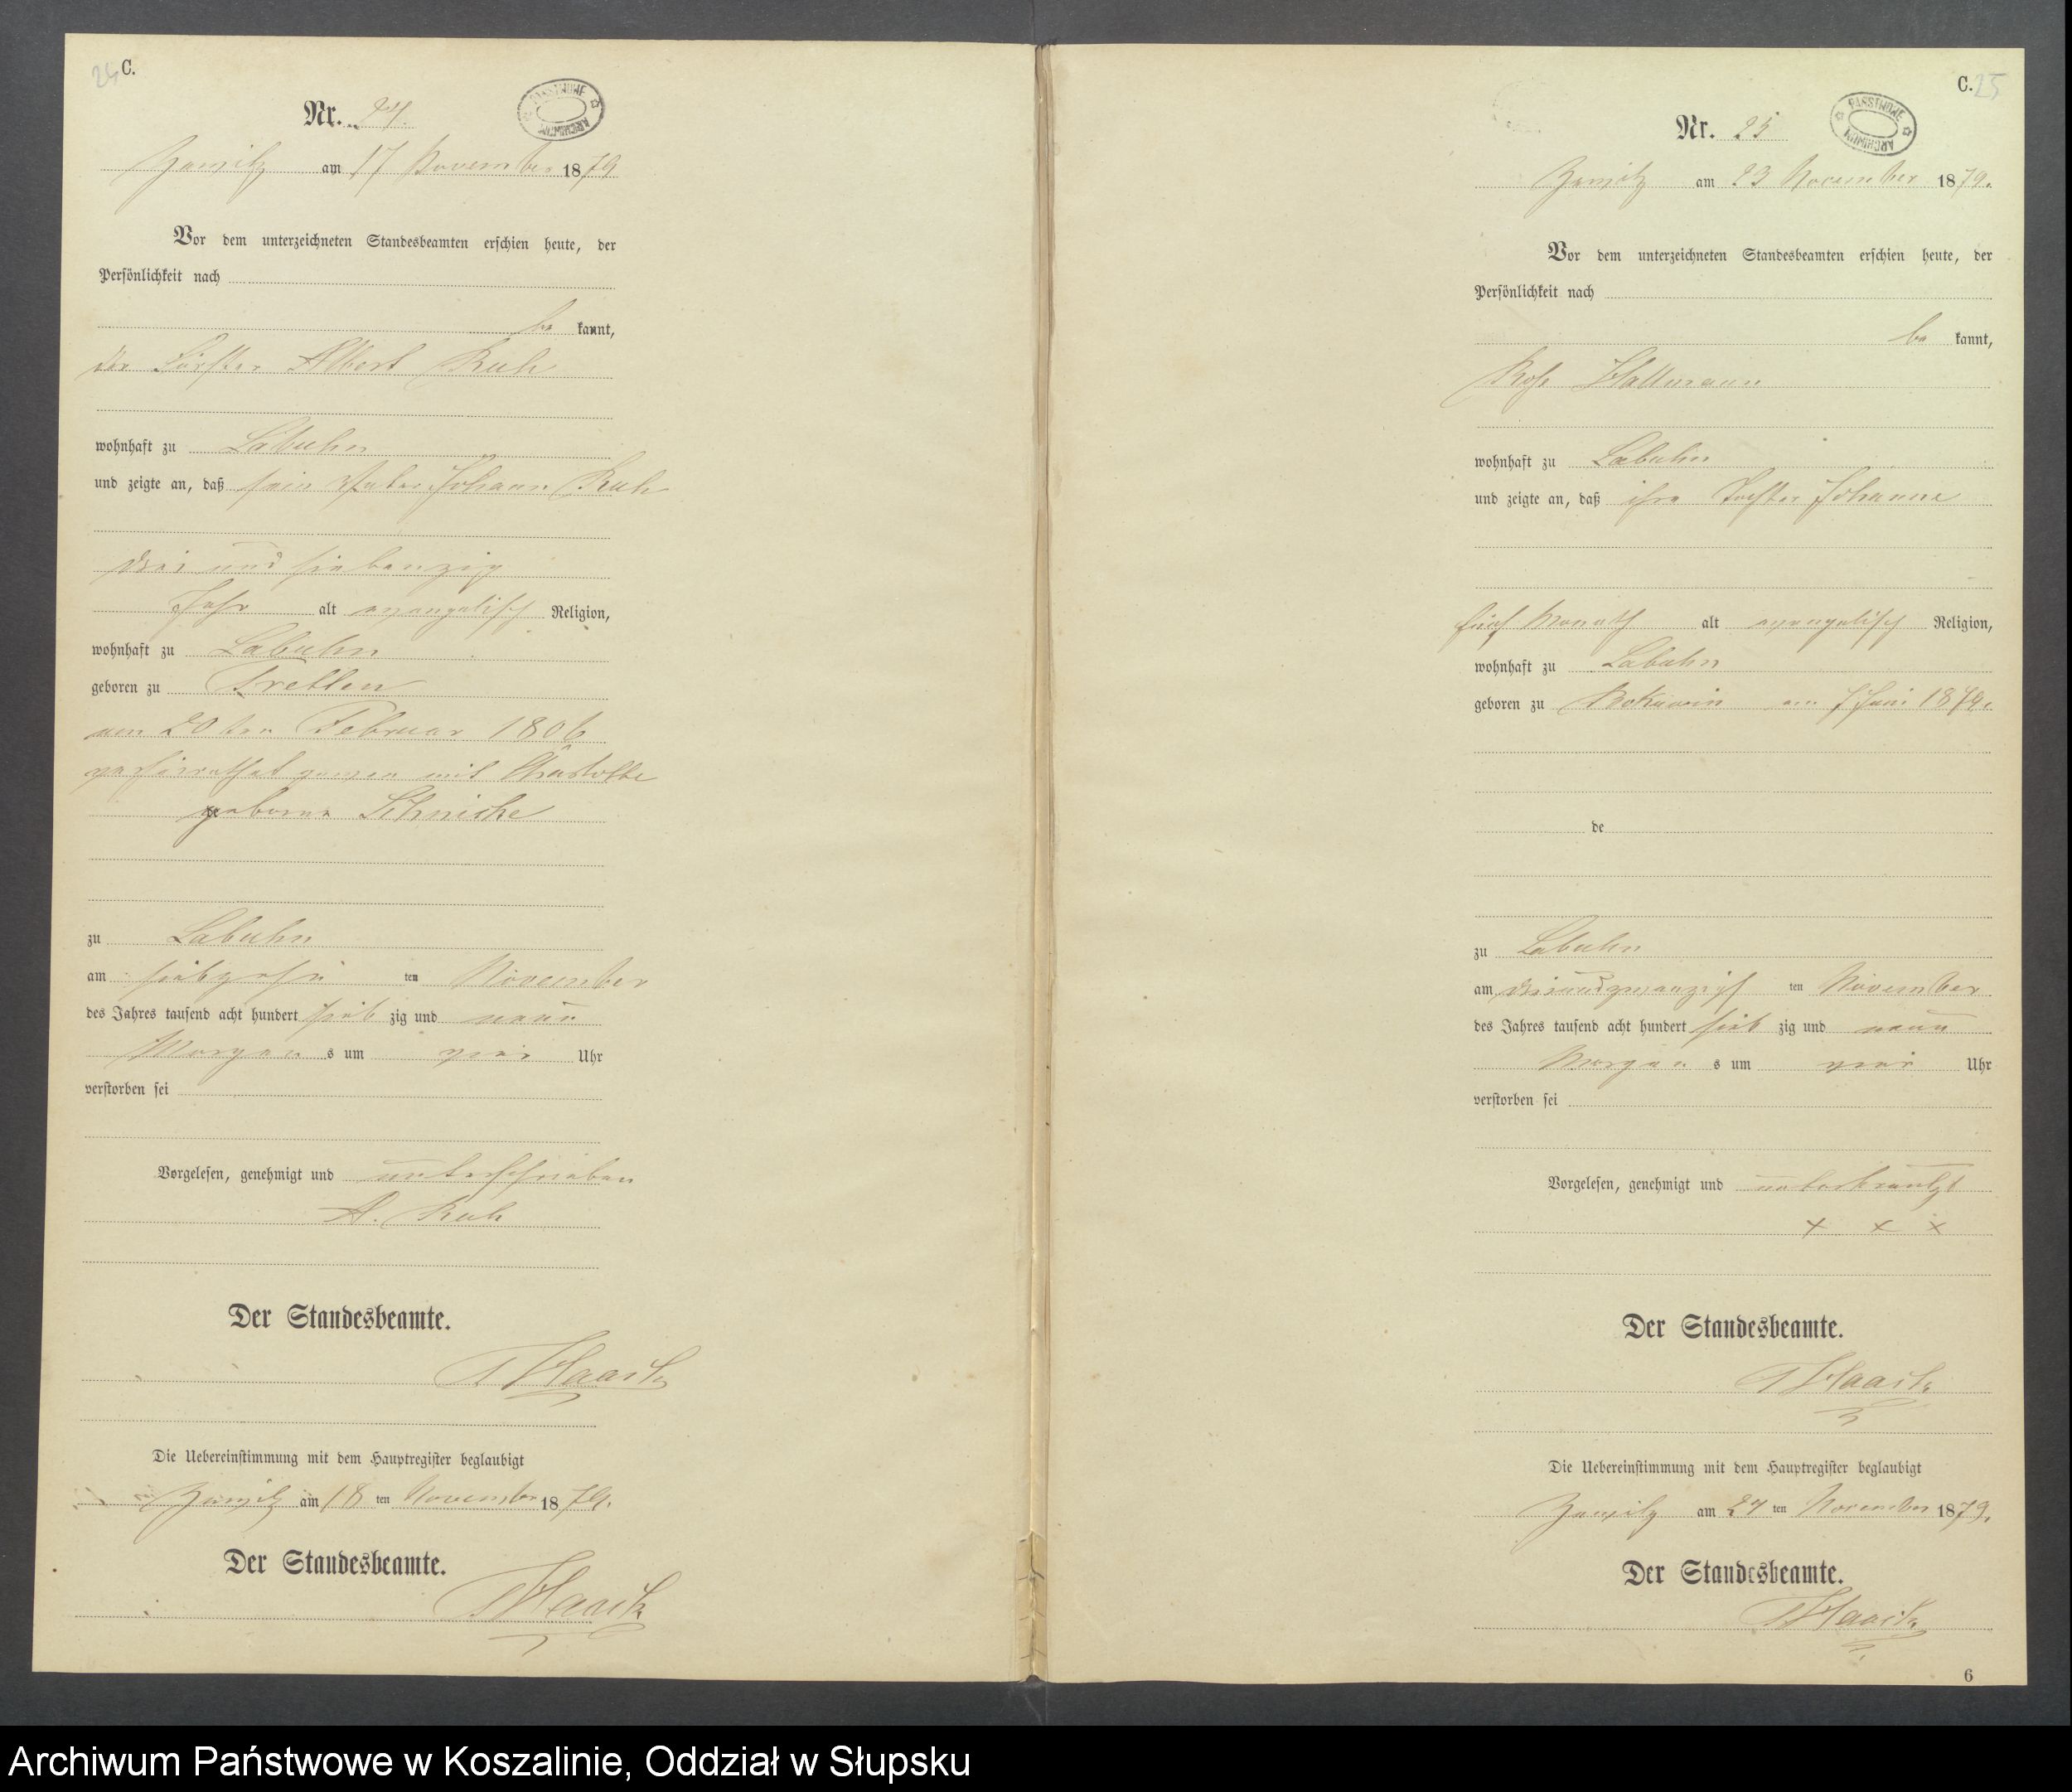 24 C.
Nr. 24.
PAŃSTWOWE ARCHIWUM
Zemitz am 17 November 1879
Vor dem unterzeichneten Standesbeamten erschien heute, der
Persönlichkeit nach
be kannt,
der Förster Albert Kuh
wohnhaft zu Labuhn
und zeigte an, daß sein Vater Johann Kuh
drei und siebenzig
Jahr alt evangelisch Religion,
wohnhaft zu Labuhn
geboren zu Treblen
am 20 ten Februar 1806
verheirathet gewesen mit
geborne
zu Labuhn
am siebzehn ten November
des Jahres tausend acht hundert sieb zig und neun
Morgen s um vier Uhr
verstorben sei
Vorgelesen, genehmigt und unterschrieben
A. Kuh
Der Standesbeamte.
Die Uebereinstimmung mit dem Hauptregister beglaubigt
Zemitz am 18 ten November 1879.
Der Standesbeamte.
C. 25
Nr. 25
PAŃSTWOWE ARCHIWUM
Zemitz am 23 November 1879.
Vor dem unterzeichneten Standesbeamten erschien heute, der
Persönlichkeit nach
be kannt,
Hallmann
wohnhaft zu Labuhn
und zeigte an, daß ihre Tochter Johanne
fünf Monath alt evangelisch Religion,
wohnhaft zu Labuhn
geboren zu am 7 Juni 1879.
de
zu Labuhn
am dreiundzwanzigs ten November
des Jahres tausend acht hundert sieb zig und neun
Morgen s um vier Uhr
verstorben sei
Vorgelesen, genehmigt und unterkreuzt
x x x
Der Standesbeamte.
Die Uebereinstimmung mit dem Hauptregister beglaubigt
Zemitz am 24 ten November 1879.
Der Standesbeamte.
6
Archiwum Państwowe w Koszalinie, Oddział w Słupsku